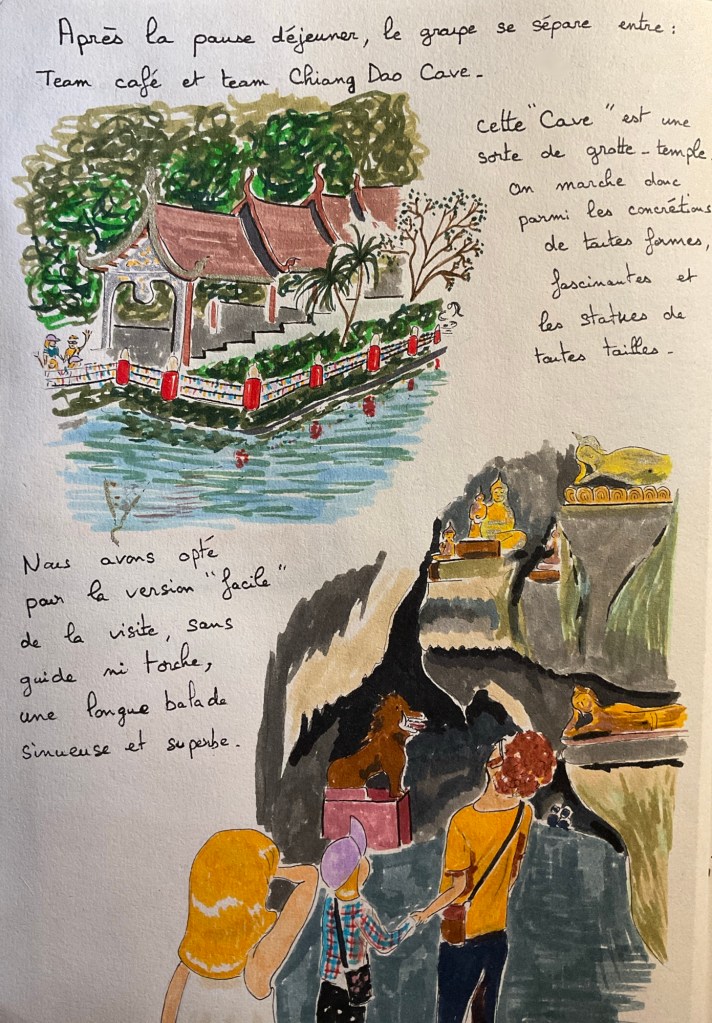 Après la pause déjeuner, le groupe se sépare entre :
Team café et team Chiang Dao Cave.
cette "Cave" est une
sorte de grotte-temple.
On marche donc
parmi les concrétions
de toutes formes,
fascinantes et
les statues de
toutes tailles.
Nous avons opté
pour la version "facile"
de la visite, sans
guide ni torche,
une longue balade
sinueuse et superbe.